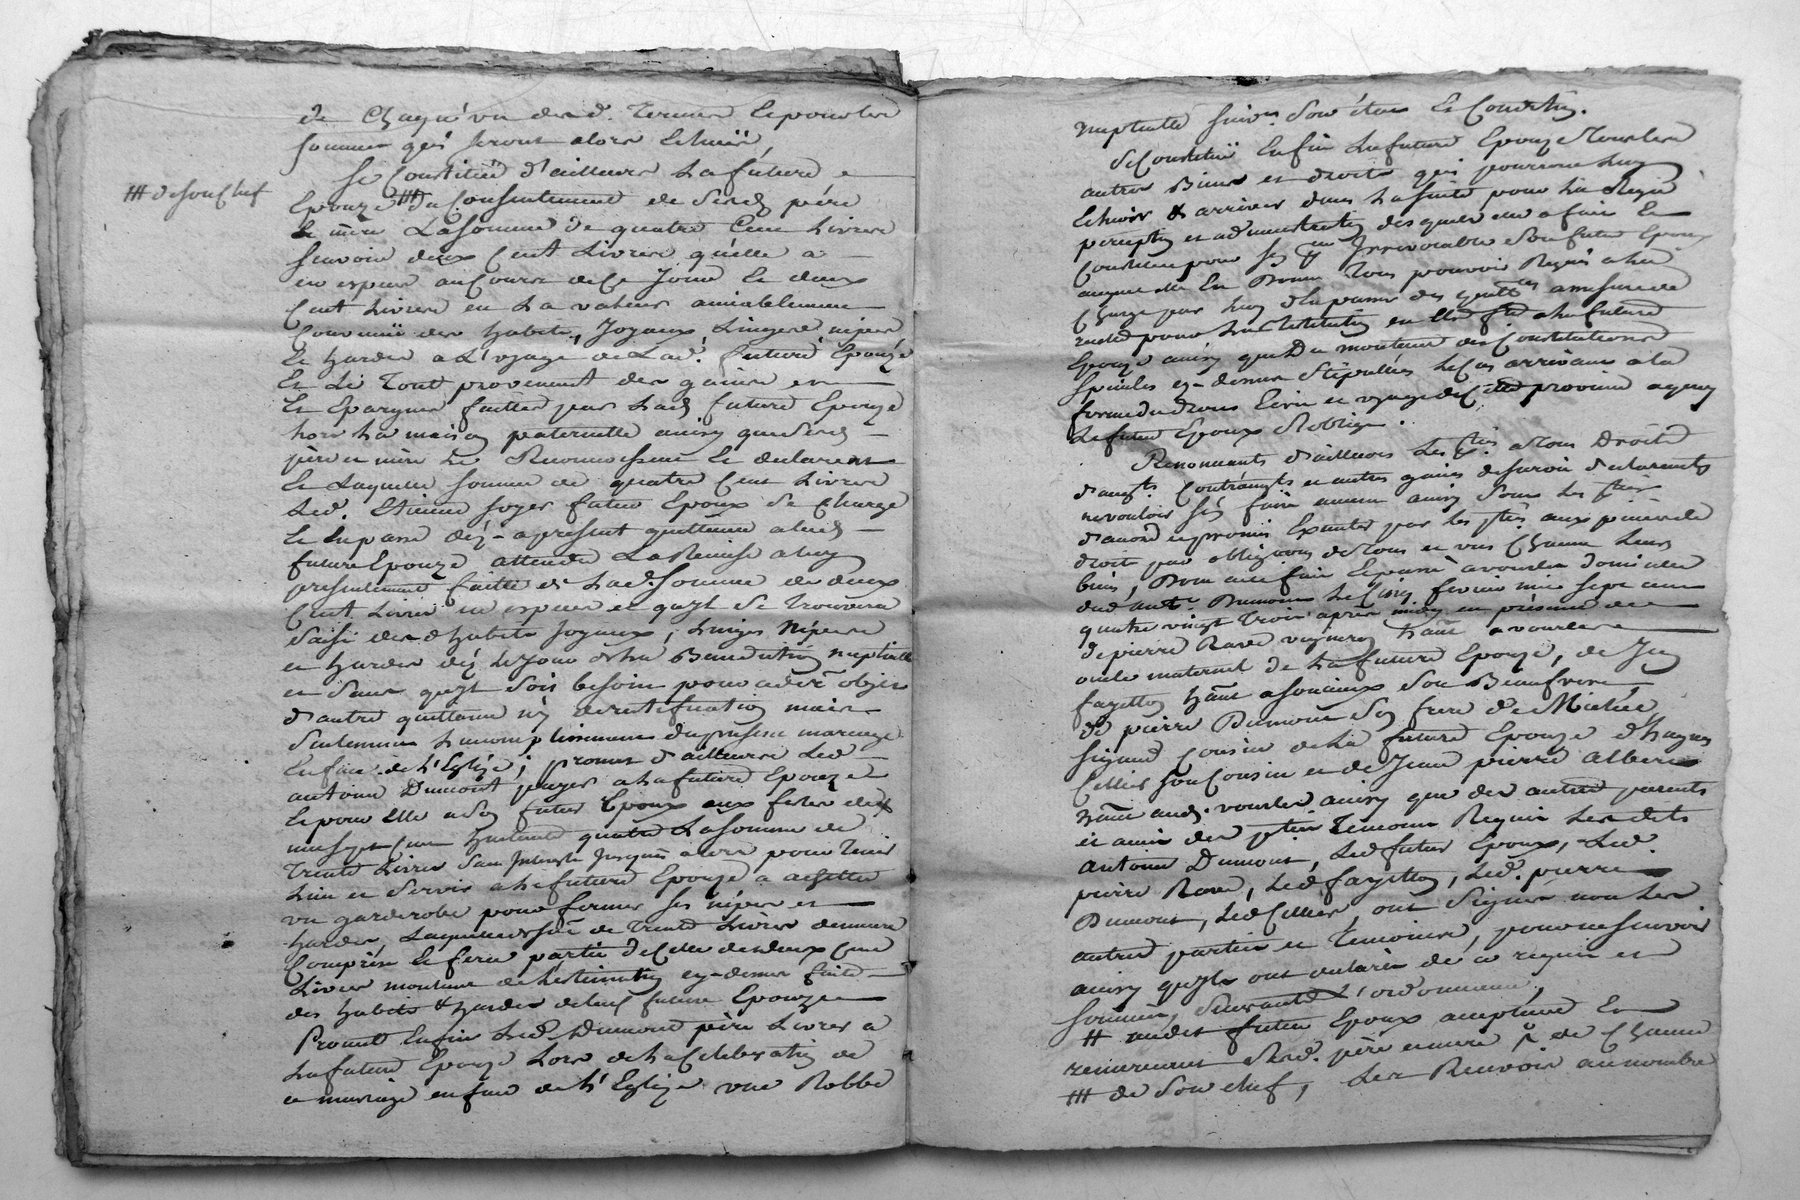 de Chaqu'un desd. Termes Et pour les
sommes qui seront alors Echues,
### de son Chef
Se Constitue d'ailleurs La future
Epouze ### du Consentement de sesd. père
Et mère La somme de quatre Cent Livres
sçavoir deux Cent Livres qu'elle a
en espece au Cours de Ce Jour Et deux
Cent Livres en La valeur amiablement
Convenuë des habits, Joyaux Linges nipes
Et hardes a L'usage de Lad. future Epouze
Et Le Tout provenant des gains et
Et Epargnes faittes par Lad. future Epouze
hors La maison paternelle ainsy que sesd.
père et mère Le Reconnoissent Et declarent
De Laquelle somme de quatre Cent Livres
Led. Etienne future Epoux Se Charge
Et en passe dez-apresent quittance a lad.
future Epouze attendu La Remise a luy
presentement faitte de Lad. somme de deux
Cent Livres en especes et qu'il se Trouvera
saisi des d. habits Joyaux, Linges Nipes
et hardes dez Le Jour de La Benediction nuptialle
et sans qu'il soit besoin pour cedit objet
d'autre quittance ny de retification mais
seulement L'accomplissement du present mariage
En face de L'Eglize; promet d'ailleurs Led.
antoine Dumont payer a La future Epouze
Et pour Elle a son futur Epoux aux fetes de
mil sept Cent huitante quatre La somme de
Trente Livres sans Interets Jusques alors pour Tenir
Lieu et servir a La future Epouze a achetter
un garderobe pour fermer ses nipes et
hardes, Laquelle de somme de Trente Livres demeure
Comprise Et fera partie de Celle de deux Cent
Livres montant de L'estimation cy-dessus faite
des habits & hardes de lad. future Epouze
Promet Enfin Led. Dumont père Livrer a
La future Epouze Lors de La Celebration de
ce mariage en face de L'Eglize une Robbe
nuptialle suivt. son état Et Condition.
Se Constitue Enfin La future Epouze Tous les
autres Biens et droits qui pourront luy
Echoir & arriver dans La suite pour La Regie
perception et administration desquels elle a fait Et
Constitue pour son Irrevocable son futur Epoux
auquel Elle En Donne Tous pouvoirs Requis a La
Charge par luy d'en passer des quittces a mesure de
rente pour La restitution en être faite a La future
Epouze ainsy que du montant des Constitutions
speciales cy-dessus stipulées Le Cas arrivant a la
forme du droit Ecrit et usage de Cette province a quoy
Le futur Epoux s'oblige.
Renonceants d'ailleurs Les pties a Tous Droits
d'augts. Contraugts et autres gains de survie declarants
ne vouloir s'en faire aucun ainsy Sont Les pties
d'accord et promis Executer par les pties aux peines de
droit par obligations de Tous et uns Chacun Leurs
biens, Dont acte fait Et passé a vourles domicile
dud. ant. Dumont Le Cinq fevrier mil sept cent
quatre vingt Trois après midy en présence de
de pierre Ravé vigneron hant. a vourles
oncle maternel de La future Epouze, de Jn
fayetton hant. a Souciaux son Beaufrere,
de pierre Dumont Son frere de Michel
sigaud Cousin de La future Epouze d'haynes
Cellier son Cousin et de Jean pierre Albert
hant. aud. vourles ainsy que des autres parents
et amis des pties Temoins Requis Lesdits
antoine Dumont, Led. futur Epoux, Led.
pierre Ravé, Led. fayetton, Led. pierre
Dumont, Led. Cellier, ont Signés non Les
autres parties et Temoins, pour ne sçavoir
ainsy qu'ils ont declarés de ce requis et
sommés, suivants L'ordonnance,
# audit futur Epoux acceptant Et
remerciant Sesd. père et mere & de Chacune
### de Son chef, Les Renvois au nombre